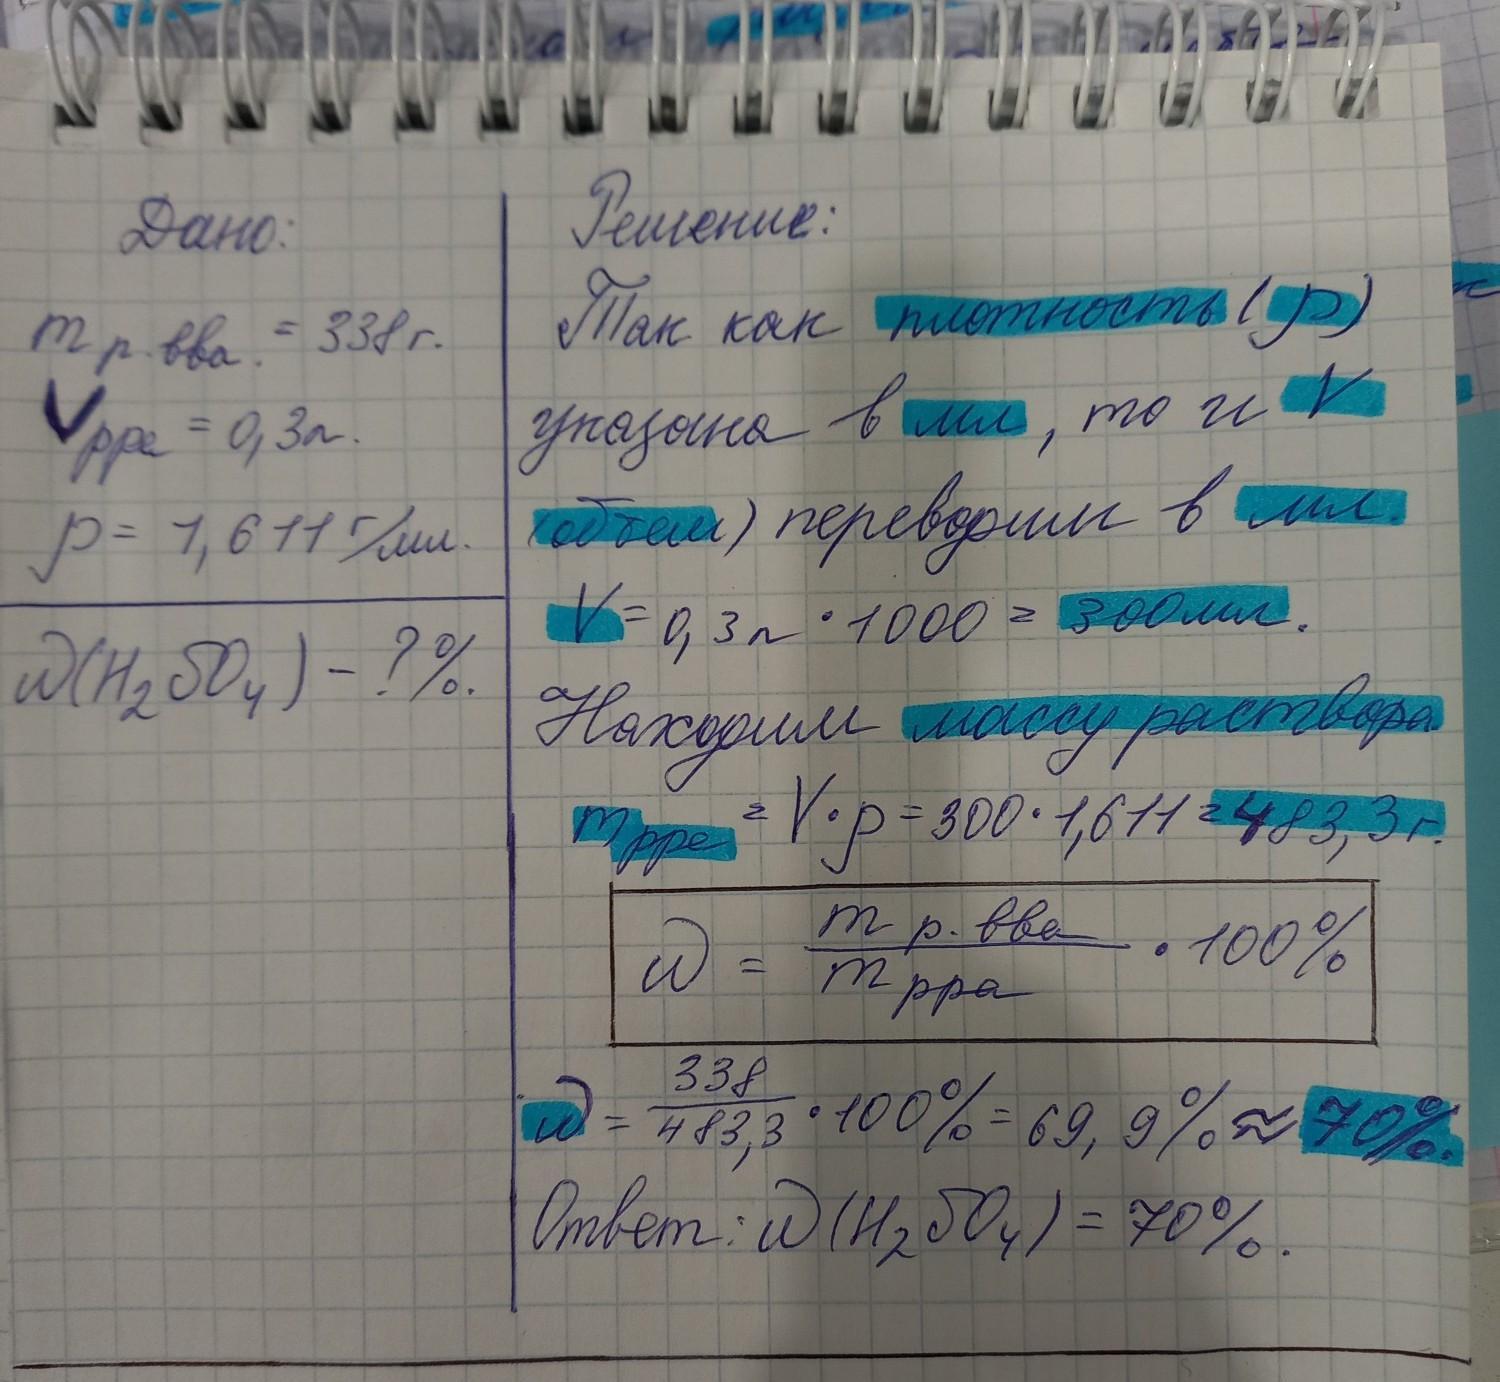 Дано:
m р. вва. = 338 г.
V рра = 0,3 л.
ρ = 1,611 г/мл.
ω(H₂SO₄) – ? %.
Решение:
Так как плотность (ρ)
указана в мл, то и V
(объем) переводим в мл.
V = 0,3 л · 1000 = 300 мл.
Находим массу раствора
m рра = V · ρ = 300 · 1,611 = 483,3 г.
ω = m р. вва / m рра · 100%
ω = 338 / 483,3 · 100% = 69,9% ≈ 70%.
Ответ: ω (H₂SO₄) = 70%.